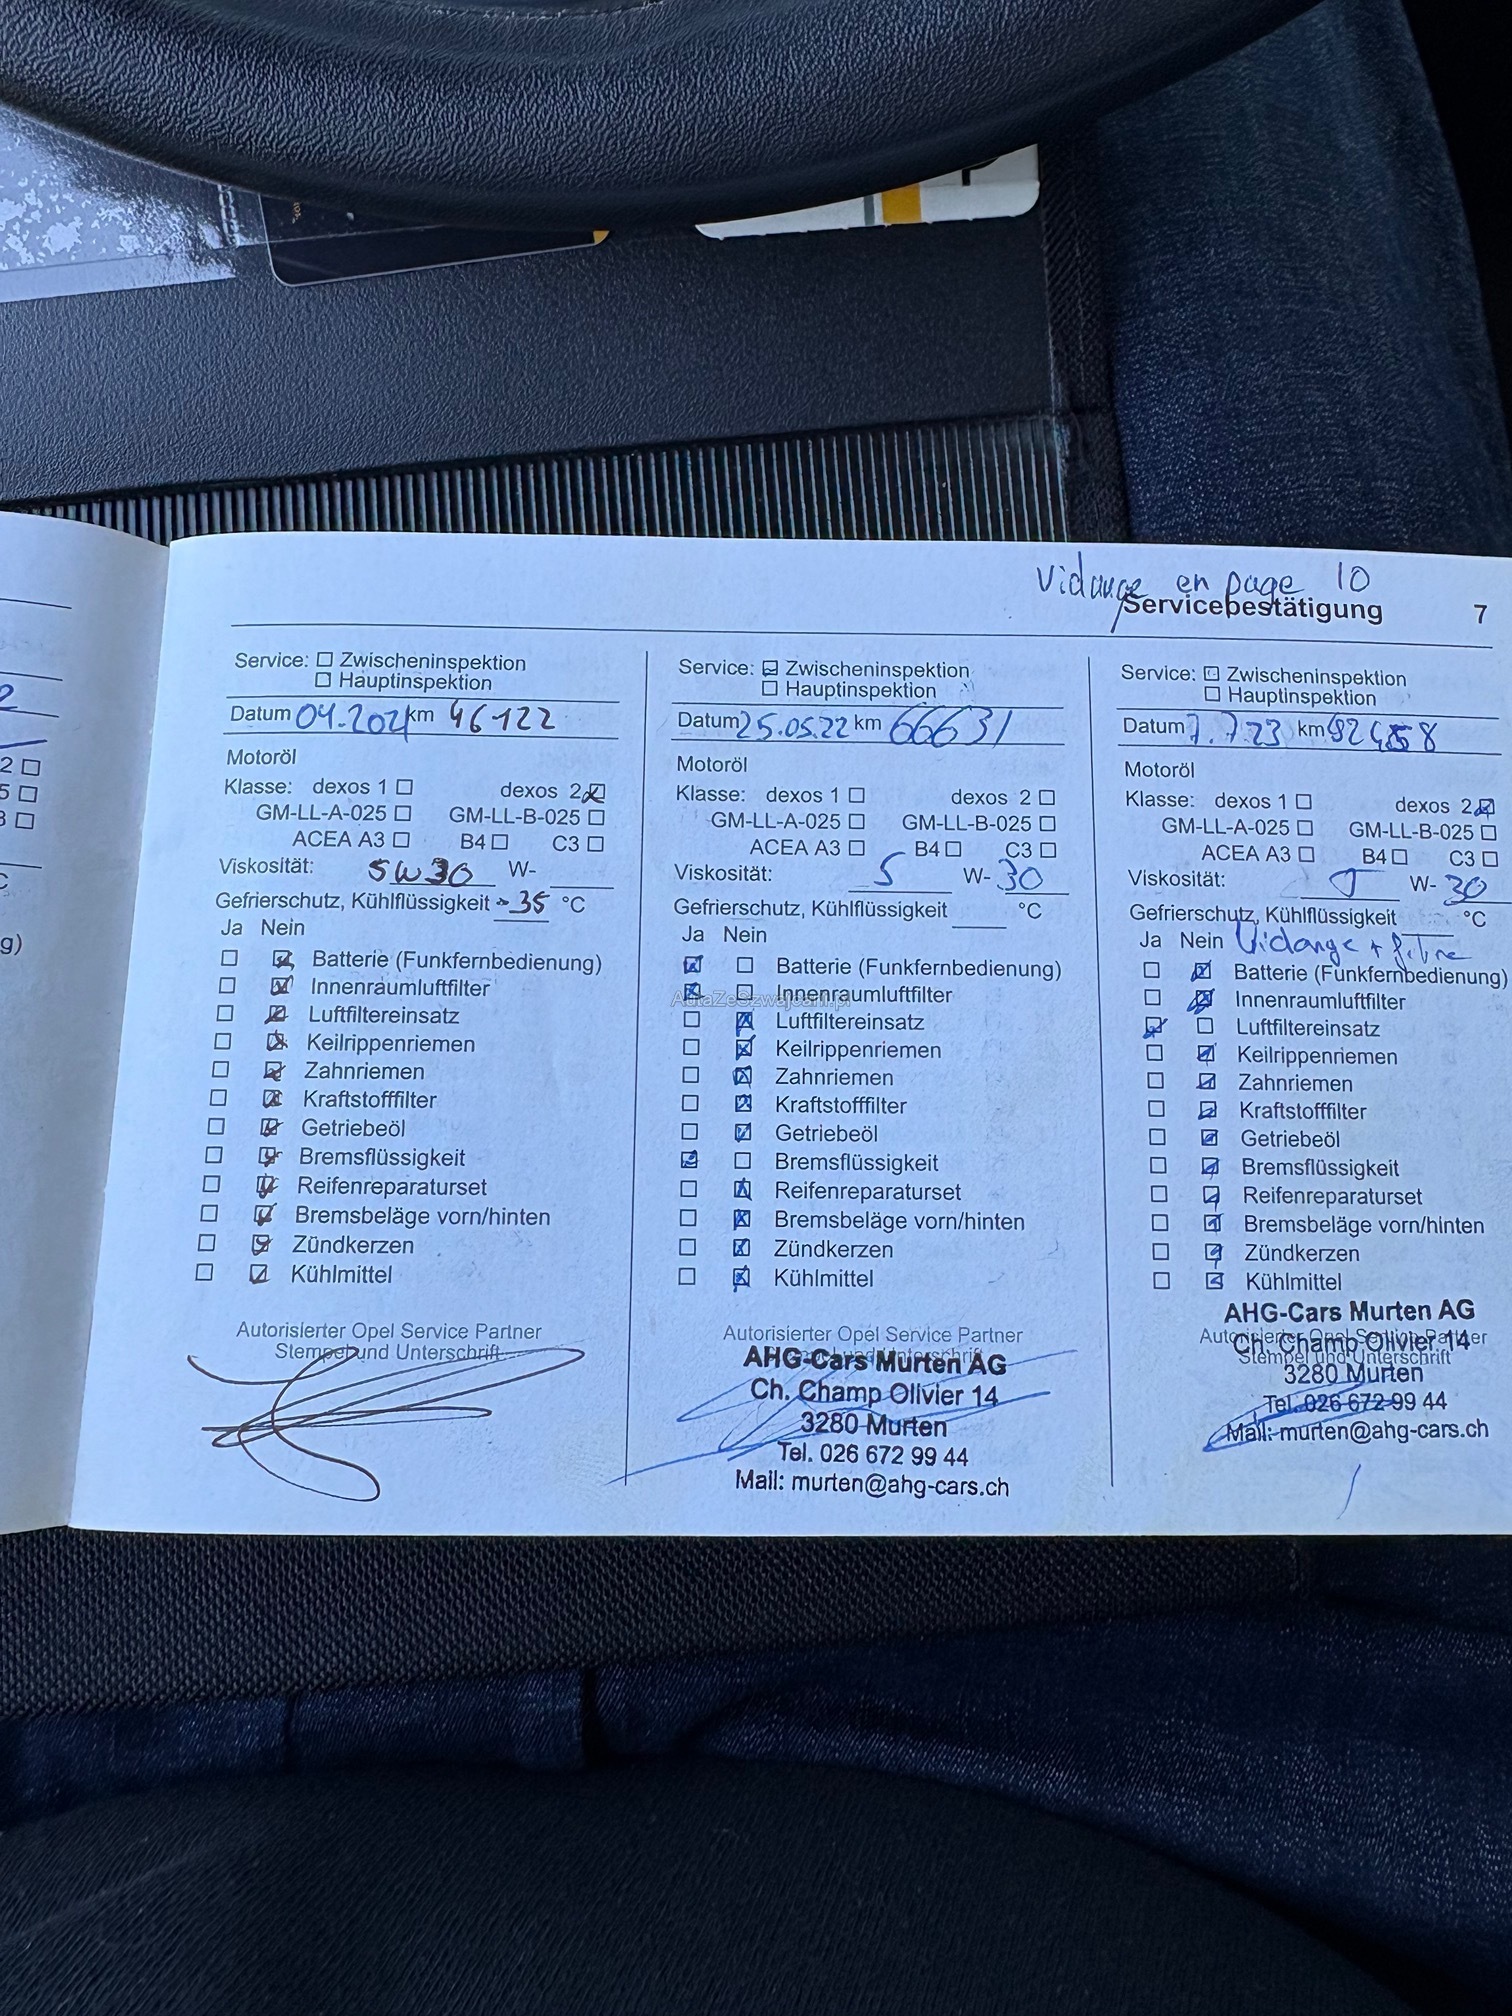 Vidange en page 10
Servicebestätigung 7
Service: Zwischeninspektion
Hauptinspektion
Datum 04.2021 km 46122
Motoröl
Klasse: dexos 1 dexos 2
GM-LL-A-025 GM-LL-B-025
ACEA A3 B4 C3
Viskosität: 5W30 W-
Gefrierschutz, Kühlflüssigkeit -35 °C
Ja Nein
Batterie (Funkfernbedienung)
Innenraumluftfilter
Luftfiltereinsatz
Keilrippenriemen
Zahnriemen
Kraftstofffilter
Getriebeöl
Bremsflüssigkeit
Reifenreparaturset
Bremsbeläge vorn/hinten
Zündkerzen
Kühlmittel
Autorisierter Opel Service Partner
Stempel und Unterschrift
Service: Zwischeninspektion
Hauptinspektion
Datum 25.05.22 km 66631
Motoröl
Klasse: dexos 1 dexos 2
GM-LL-A-025 GM-LL-B-025
ACEA A3 B4 C3
Viskosität: 5 W-30
Gefrierschutz, Kühlflüssigkeit °C
Ja Nein
Batterie (Funkfernbedienung)
Innenraumluftfilter
AutaZeSzwajcarii.pl
Luftfiltereinsatz
Keilrippenriemen
Zahnriemen
Kraftstofffilter
Getriebeöl
Bremsflüssigkeit
Reifenreparaturset
Bremsbeläge vorn/hinten
Zündkerzen
Kühlmittel
Autorisierter Opel Service Partner
Stempel und Unterschrift
AHG-Cars Murten AG
Ch. Champ Olivier 14
3280 Murten
Tel. 026 672 99 44
Mail: murten@ahg-cars.ch
Service: Zwischeninspektion
Hauptinspektion
Datum 7.7.23 km
Motoröl
Klasse: dexos 1 dexos 2
GM-LL-A-025 GM-LL-B-025
ACEA A3 B4 C3
Viskosität: W-30
Gefrierschutz, Kühlflüssigkeit °C
Ja Nein Vidange + filtre
Batterie (Funkfernbedienung)
Innenraumluftfilter
Luftfiltereinsatz
Keilrippenriemen
Zahnriemen
Kraftstofffilter
Getriebeöl
Bremsflüssigkeit
Reifenreparaturset
Bremsbeläge vorn/hinten
Zündkerzen
Kühlmittel
AHG-Cars Murten AG
Autorisierter Opel Service Partner
Ch. Champ Olivier 14
Stempel und Unterschrift
3280 Murten
Tel. 026 672 99 44
Mail: murten@ahg-cars.ch